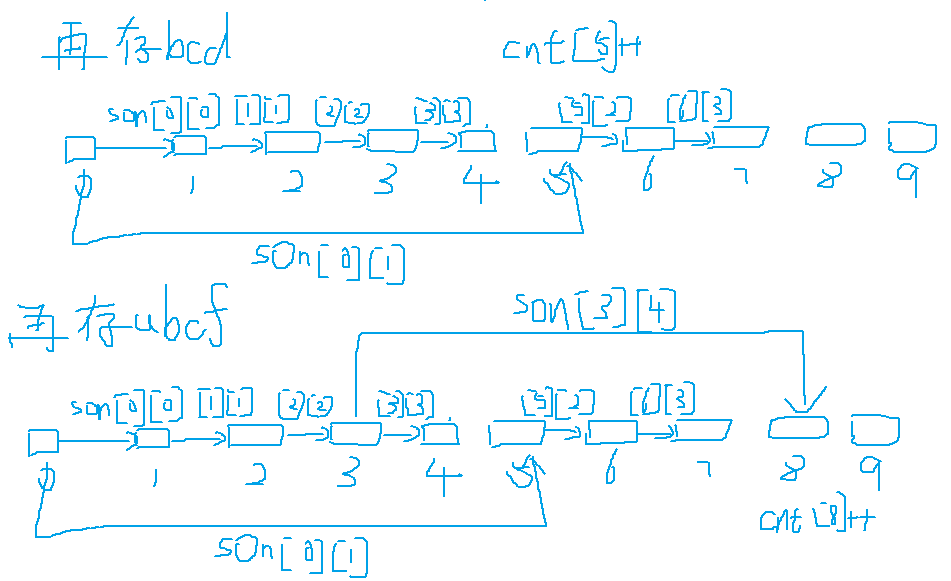 再存bcd cnt[5]++
son[0][0] [1][1] [2][2] [3][3] [5][2] [6][3]
0 1 2 3 4 5 6 7 8 9
son[0][1]
再存abcf
son[3][4]
son[0][0] [1][1] [2][2] [3][3] [5][2] [6][3]
0 1 2 3 4 5 6 7 8 9
cnt[8]++
son[0][1]